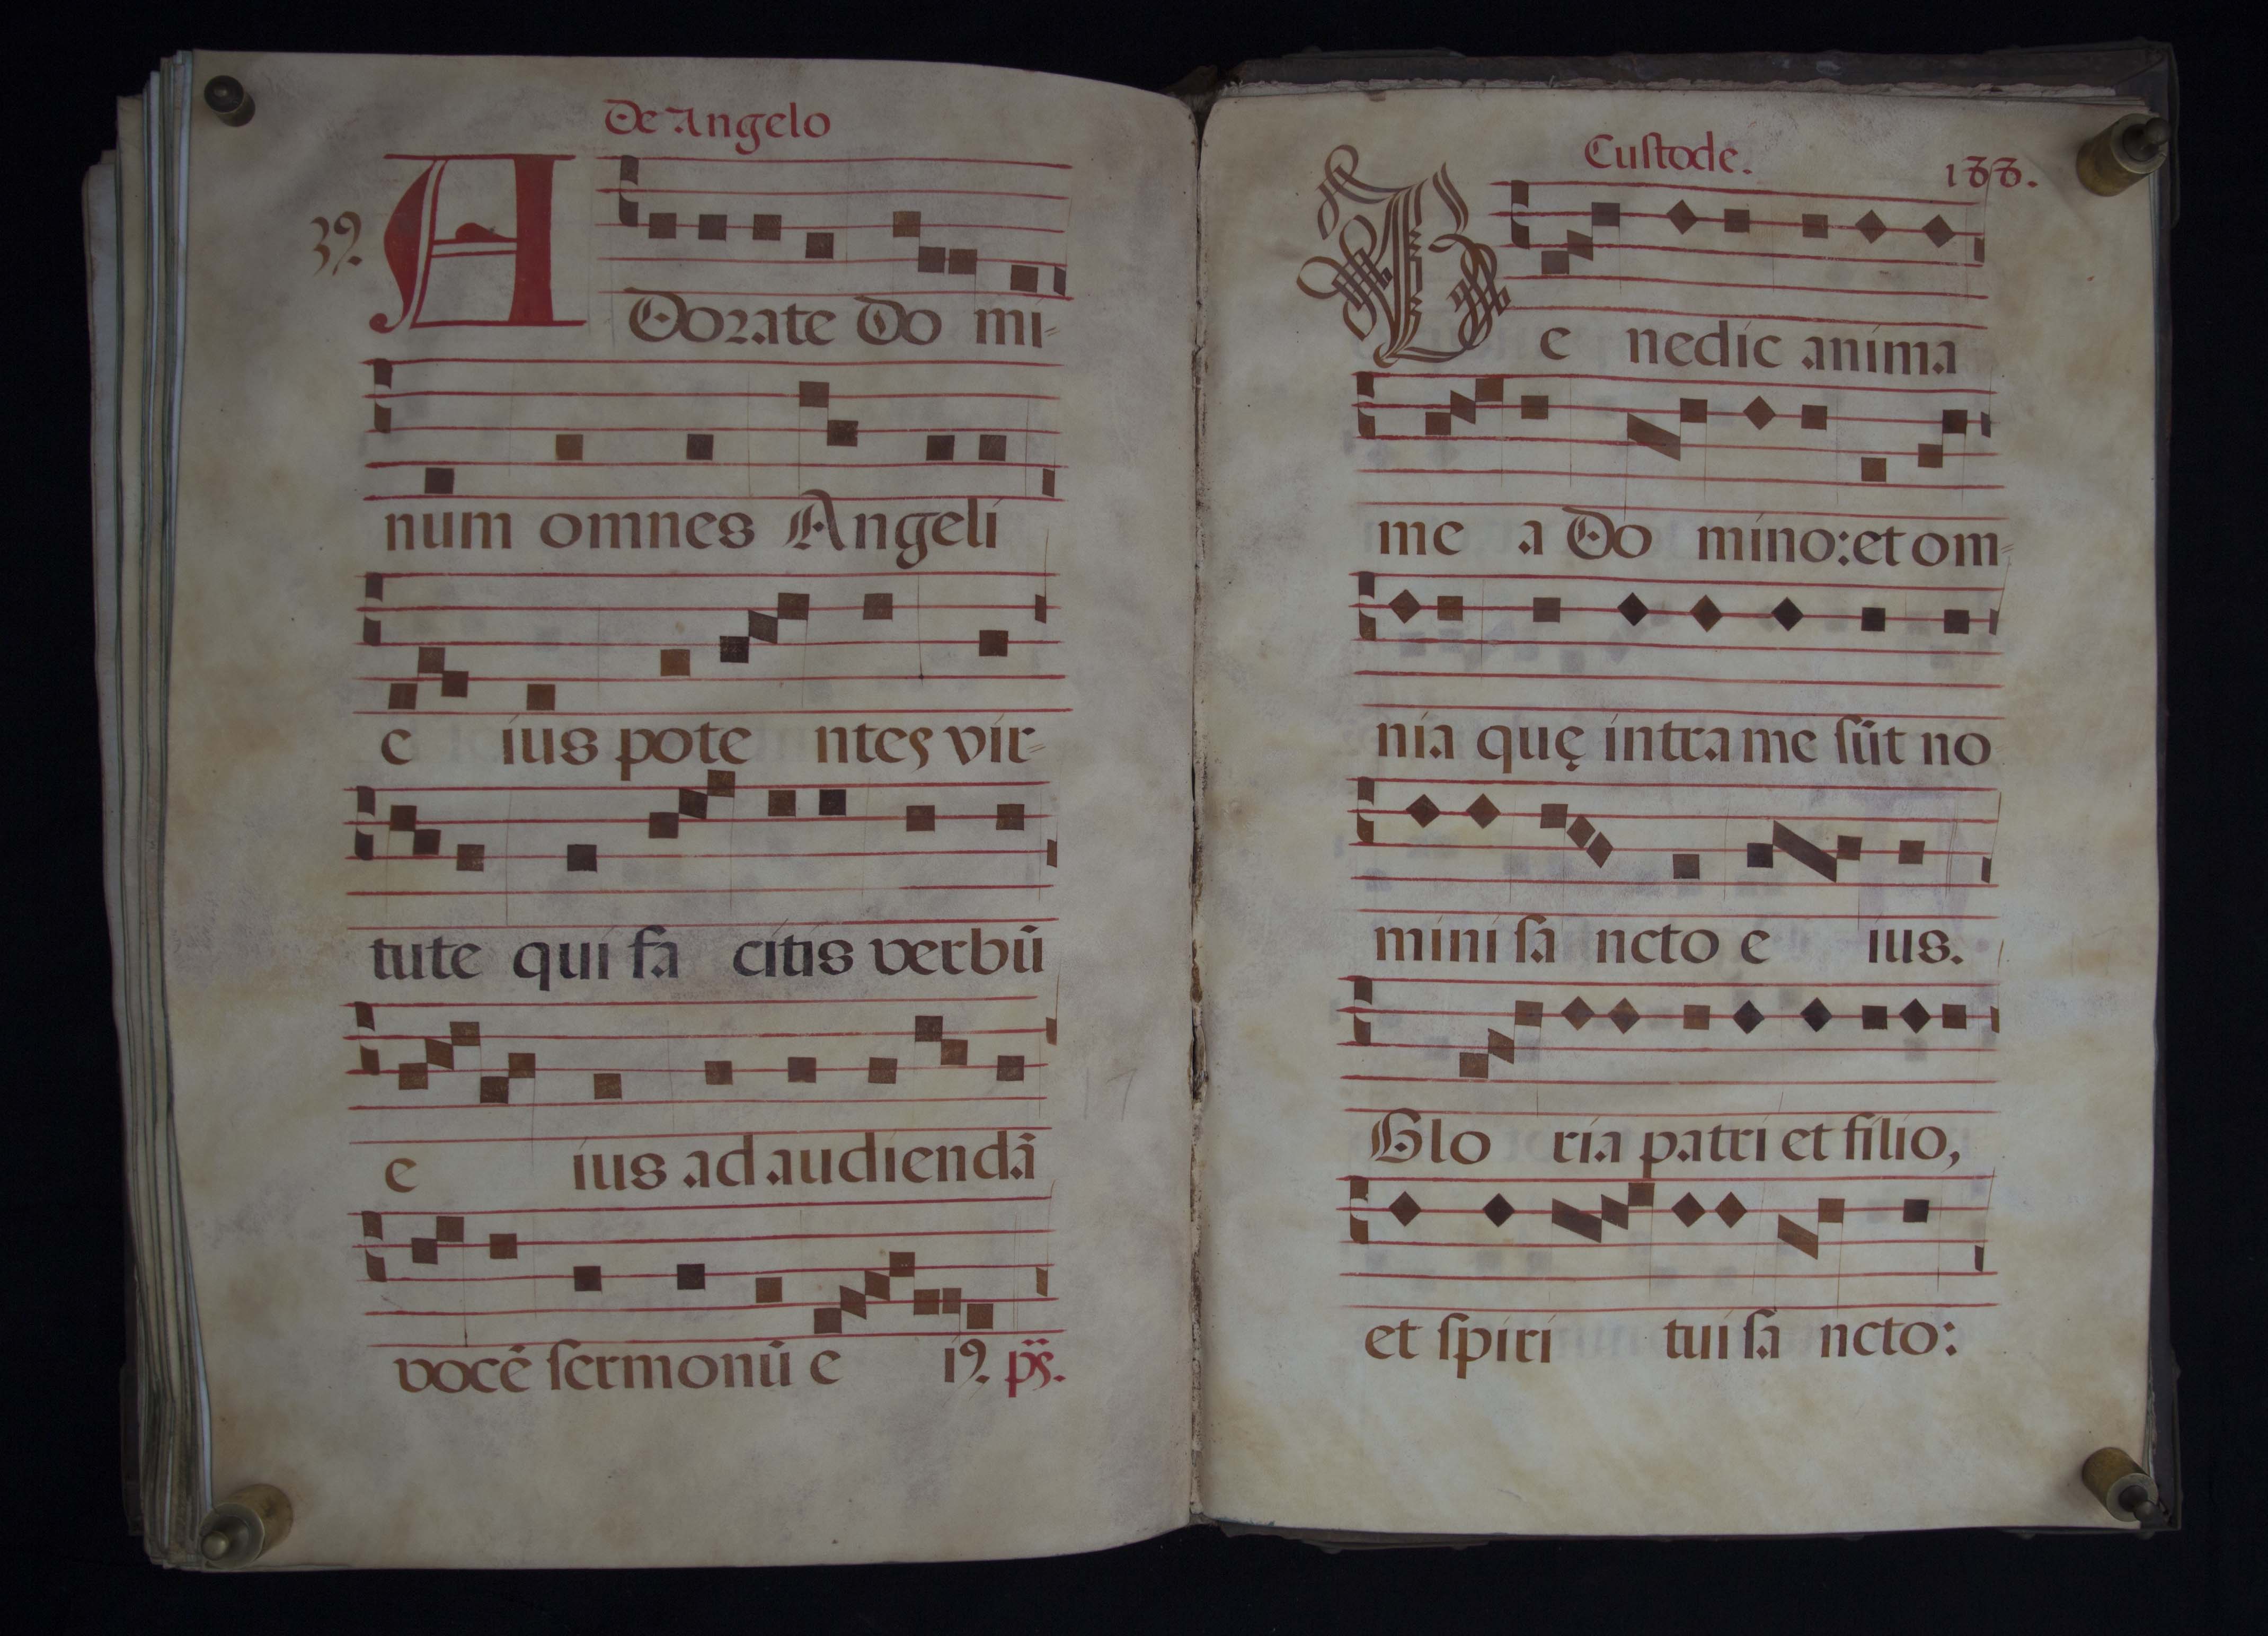 De Angelo
39.
ADorate Do mi=
num omnes Angeli
e ius pote ntes vir=
tute qui fa citis verbũ
e ius ad audiendã
vocẽ ſermonũ e i9. ps̃.
Cuſtode.
188.
Be nedic anima
me a Do mino: et om=
nia quę intra me ſũt no
mini ſa ncto e ius.
Glo ria patri et filio,
et ſpiri tui ſa ncto: